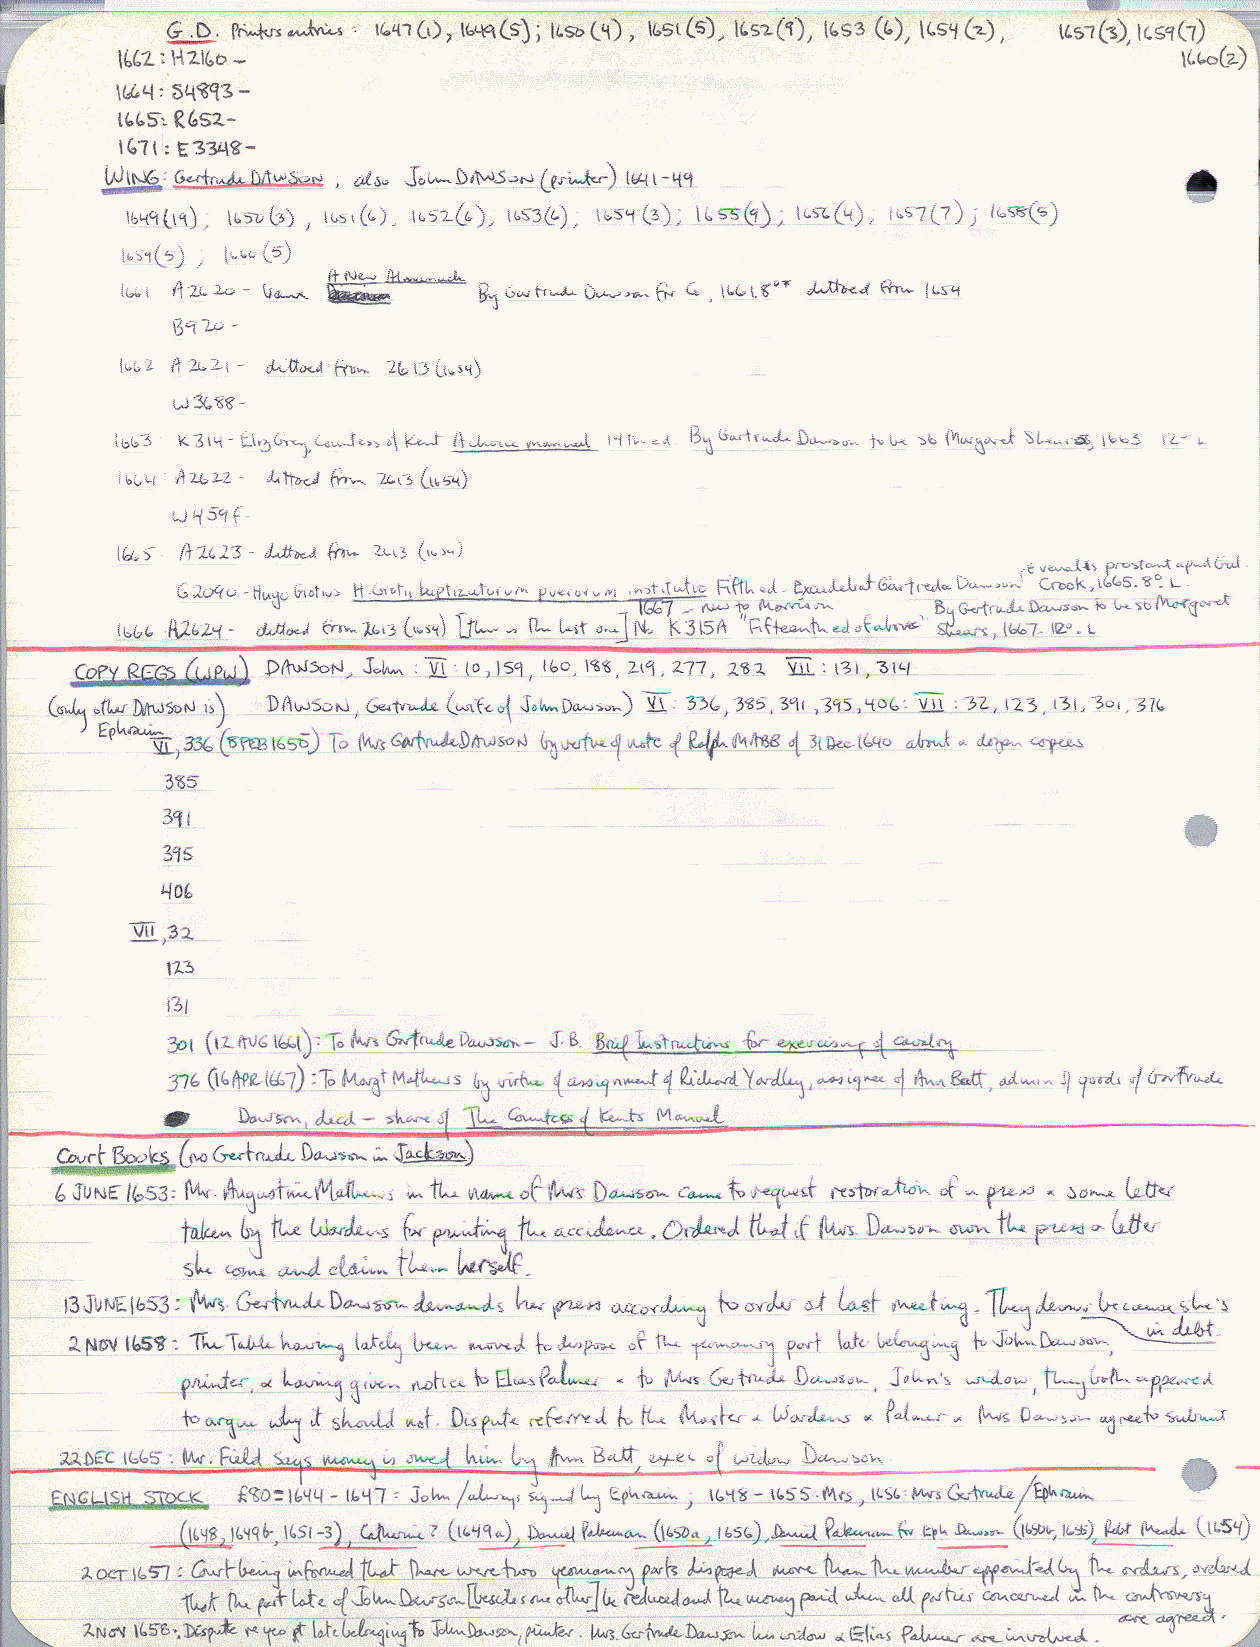 G.D. Printers entries: 1647(1), 1649(5); 1650(4), 1651(5), 1652(9), 1653(6), 1654(2), 1657(3), 1659(7)
1660(2)
1662: H2160 –
1664: S4893 –
1665: R652 –
1671: E3348 –
WING: Gertrude DAWSON, also John DAWSON (printer) 1641-49
1649(19); 1650(3), 1651(6), 1652(6), 1653(6); 1654(3); 1655(9); 1656(4), 1657(7); 1658(5)
1659(5); 1660(5)
A New Almanack
1661 A2620 – Vaux By Gartrude Dawson for Co, 1661.8°* dittoed from 1654
B920 –
1662 A2621 – dittoed from 2613 (1654)
W3688 –
1663 K314 – Eliz Grey, Countess of Kent A choice manuel 14th ed. By Gartrude Dawson to be sb Margaret Shears, 1663 12° L
1664 A2622 – dittoed from 2613 (1654)
W459
1665 A2623 – dittoed from 2613 (1654)
Et venalis prostant apud Gul.
G2090 – Hugo Grotius H. Grotii baptizatorum puerorum institutio Fifth ed. Excudebat Gartreda Dawson Crook, 1665. 8° L.
1667 – new to Morrison By Gertrude Dawson to be sb Margaret
1666 A2624 – dittoed from 2613 (1654) [this is the last one] No K315A "Fifteenth ed of above" Shears, 1667. 12°. L
COPY REGS (WPW) DAWSON, John: VI: 10, 159, 160, 188, 219, 277, 282 VII: 131, 314
(only other DAWSON is Ephraim) DAWSON, Gertrude (wife of John Dawson) VI: 336, 385, 391, 395, 406: VII: 32, 123, 131, 301, 376
VI, 336 (8 FEB 1650) To Mrs Gartrude DAWSON by vertue of note of Ralph MABB of 31 Dec 1640 about a dozen copies
385
391
395
406
VII, 32
123
131
301 (12 AUG 1661): To Mrs Gartrude Dawson – J.B. Brief Instructions for exercising of cavalry
376 (16 APR 1667): To Margt Mathews by virtue of assignment of Richard Yardley, assignee of Ann Batt, admin of goods of Gartrude
Dawson, decd – share of The Countess of Kents Manuel
Court Books (no Gertrude Dawson in Jackson)
6 JUNE 1653: Mr. Augustine Mathews in the name of Mrs. Dawson came to request restoration of a press & some letter
taken by the Wardens for printing the accidence. Ordered that if Mrs. Dawson own the press & letter
she come and claim them herself.
13 JUNE 1653: Mrs. Gertrude Dawson demands her press according to order at last meeting. They demur because she's
in debt.
2 NOV 1658: The Table having lately been moved to dispose of the yeomanry part late belonging to John Dawson,
printer, & having given notice to Elias Palmer & to Mrs. Gertrude Dawson, John's widow, they both appeared
to argue why it should not. Dispute referred to the Master & Wardens & Palmer & Mrs Dawson agree to submit
22 DEC 1665: Mr. Field says money is owed him by Ann Batt, exec of widow Dawson
ENGLISH STOCK £80 = 1644-1647: John/always signed by Ephraim; 1648-1655: Mrs, 1656: Mrs Gertrude/Ephraim
(1648, 1649b, 1651-3), Catherine? (1649a), Daniel Pakeman (1650a, 1656), Daniel Pakeman for Eph Dawson (1650b, 1655) Robt Meade (1654)
2 OCT 1657: Court being informed that there were two yeomanry parts disposed more than the number appointed by the orders, ordered
that the part late of John Dawson [besides one other] be reduced and the money paid when all parties concerned in the controversy
are agreed.
2 NOV 1658: Dispute re yeo pt late belonging to John Dawson, printer. Mrs. Gertrude Dawson his widow & Elias Palmer are involved.